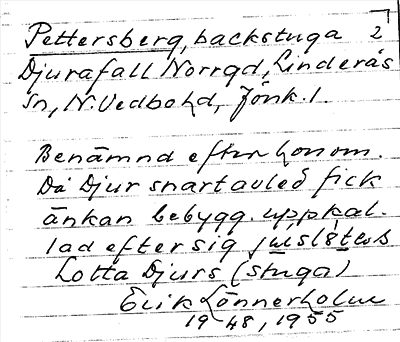 Pettersberg, backstuga 2
Djurafall Norrgd, Linderås
sn, N. Vedbo hd, Jönk. l.
Benämnd efter honom.
Då Djur snart avled fick
änkan bebygg. uppkal-
lad efter sig
Lotta Djurs (stuga)
Erik Lönnerholm
1948, 1955